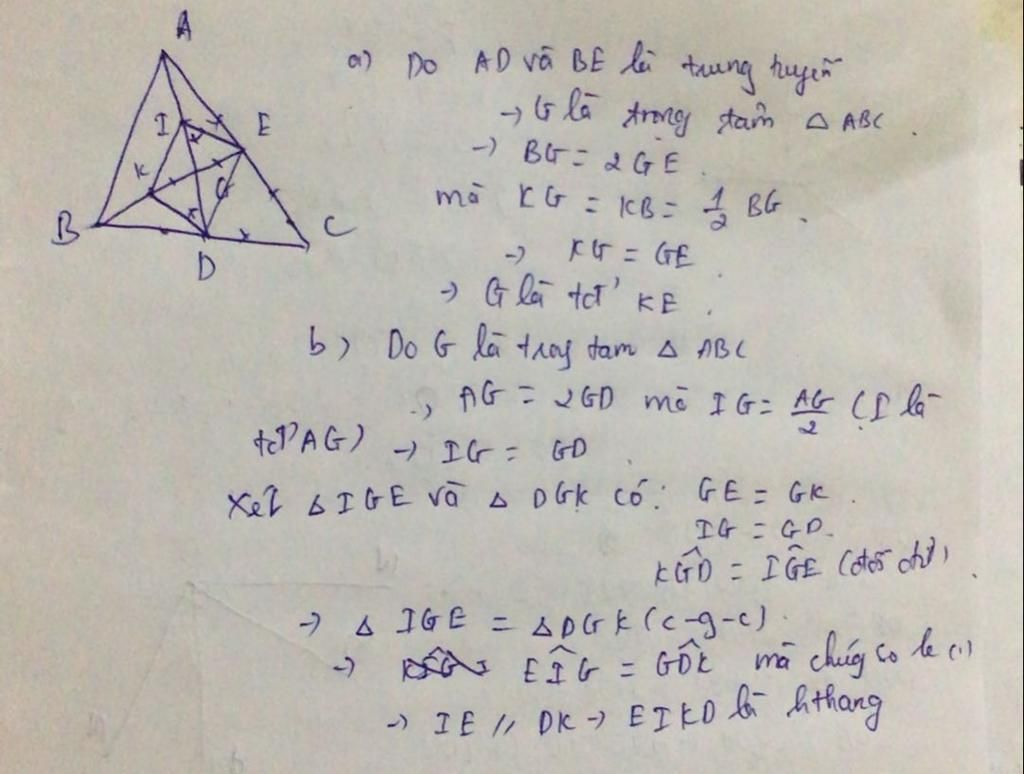 A
I
E
K
G
B
D
C
a) Do AD và BE là trung tuyến
→ G là trọng tâm △ ABC.
→ BG = 2GE.
mà KG = KB = 1/2 BG.
→ KG = GE.
→ G là tđ' KE.
b) Do G là trog tam △ ABC
→ AG = 2GD mà IG = AG/2 (I là
tđ' AG) → IG = GD.
Xét △ IGE và △ DGK có: GE = GK.
IG = GD.
KĜD = IĜE (đối đỉ').
→ △ IGE = △DGK (c-g-c).
→ EÎG = GD̂K mà chúg so le (1)
→ IE // DK → EIKD là hthang